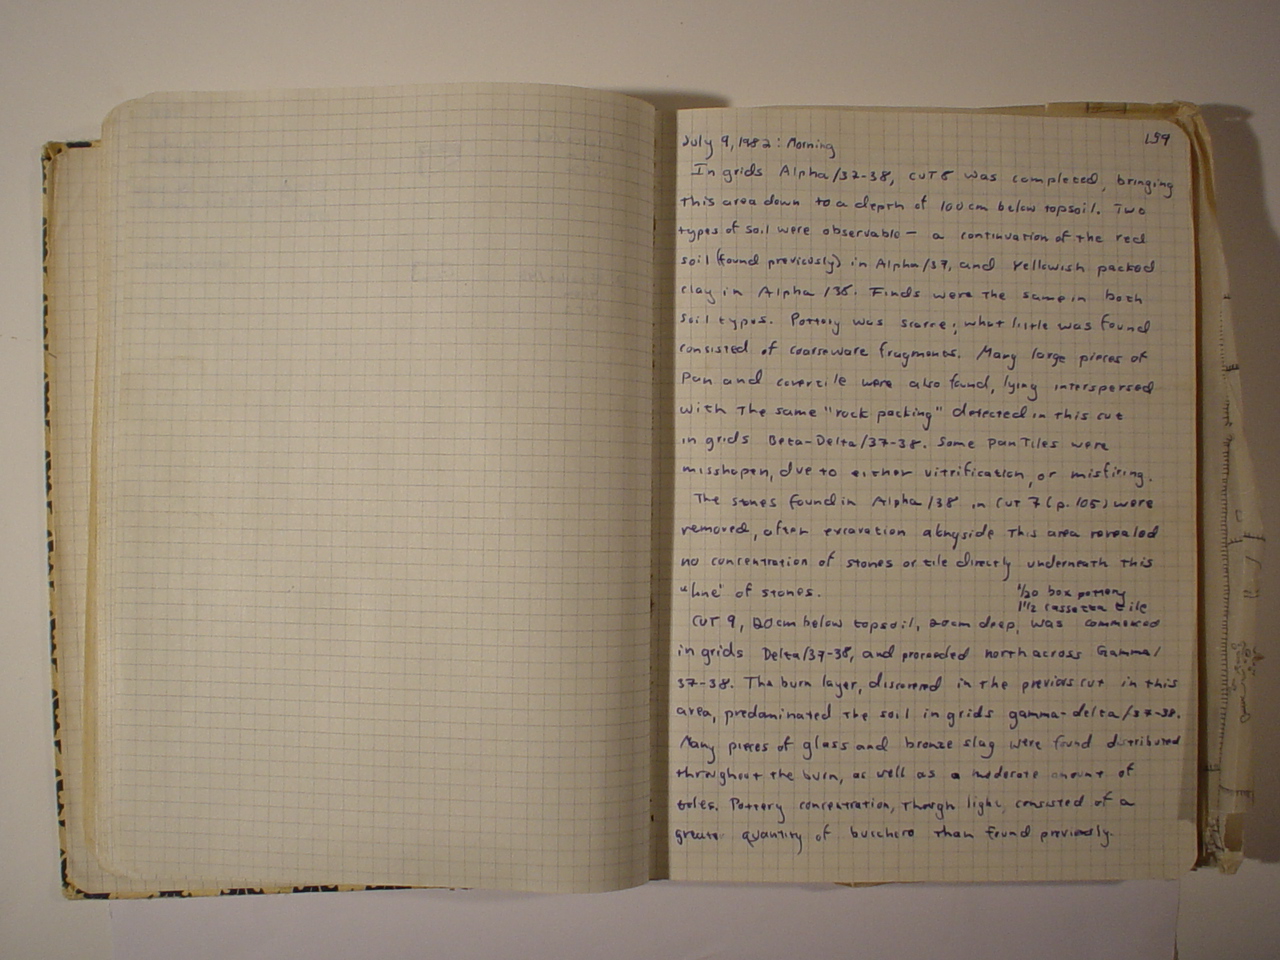 159
July 9, 1982: Morning
In grids Alpha/37-38, CUT 8 was completed, bringing
this area down to a depth of 100 cm below topsoil. Two
types of soil were observable - a continuation of the red
soil (found previously) in Alpha/37, and yellowish packed
clay in Alpha/38. Finds were the same in both
soil types. Pottery was scarce; what little was found
consisted of coarseware fragments. Many large pieces of
pan and covertile were also found, lying interspersed
with the same "rock packing" detected in this cut
in grids Beta-Delta/37-38. Some Pan Tiles were
misshapen, due to either vitrification, or misfiring.
The stones found in Alpha/38 in CUT 7 (p. 105) were
removed, after excavation alongside this area revealed
no concentration of stones or tile directly underneath this
"line" of stones.
1/20 box pottery
1 1/2 cassetta tile
CUT 9, 120cm below topsoil, 20cm deep, was commenced
in grids Delta/37-38, and proceeded north across Gamma/
37-38. The burn layer, discovered in the previous cut in this
area, predominated the soil in grids gamma-delta/37-38.
Many pieces of glass and bronze slag were found distributed
throughout the burn, as well as a moderate amount of
tiles. Pottery concentration, though light, consisted of a
greater quantity of bucchero than found previously.